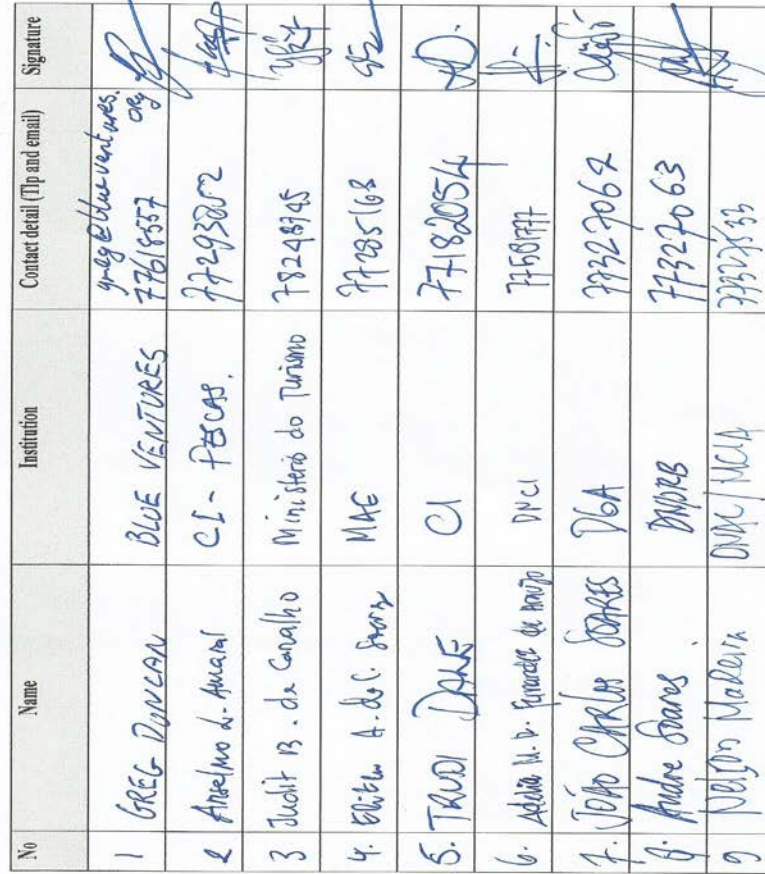 No Name Institution Contact detail (Tlp and email) Signature
1 GREG DUNCAN BLUE VENTURES greg@blueventures.org
77618557
2 Anselmo L. Amaral CI - PESCAS. 77293802
3 Judit B. de Carvalho Ministerio do Turismo 78248745
4. A. da C. MAE 77285168
5. TRUDI DANE CI 77182054
6. de Araújo DNCI 77581777
7. JOÃO CARLOS SOARES DGA 77327062
8. Andre Soares 77327063
9 Nelson Madeira 77327533